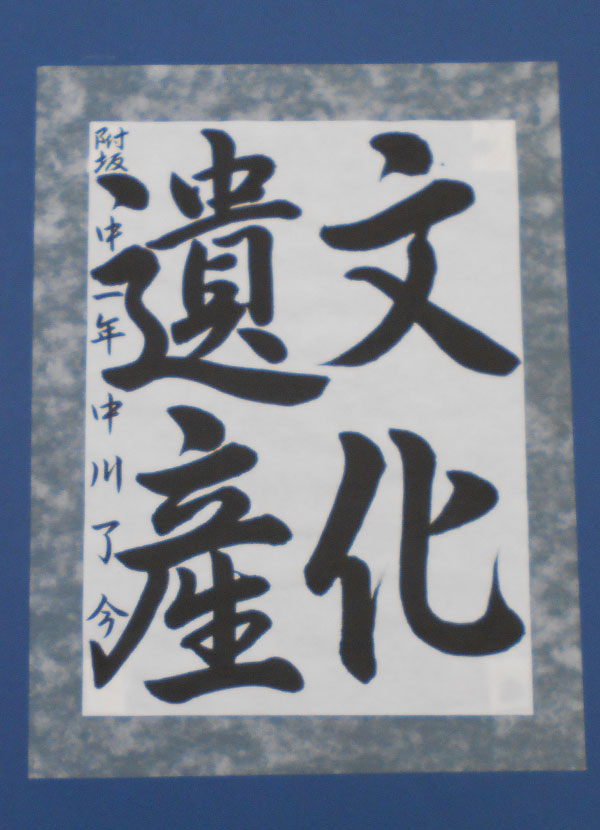 文化
遺産
附坂中一年 中川了今